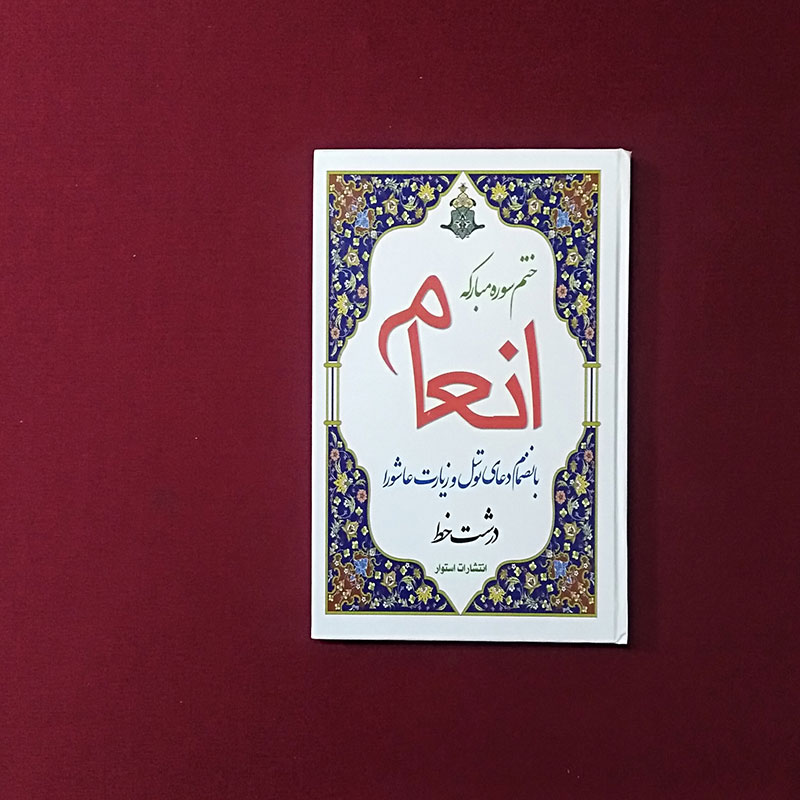 ختم سوره مبارکه
انعام
بانضمام دعای توسل و زیارت عاشورا
درشت خط
انتشارات استوار